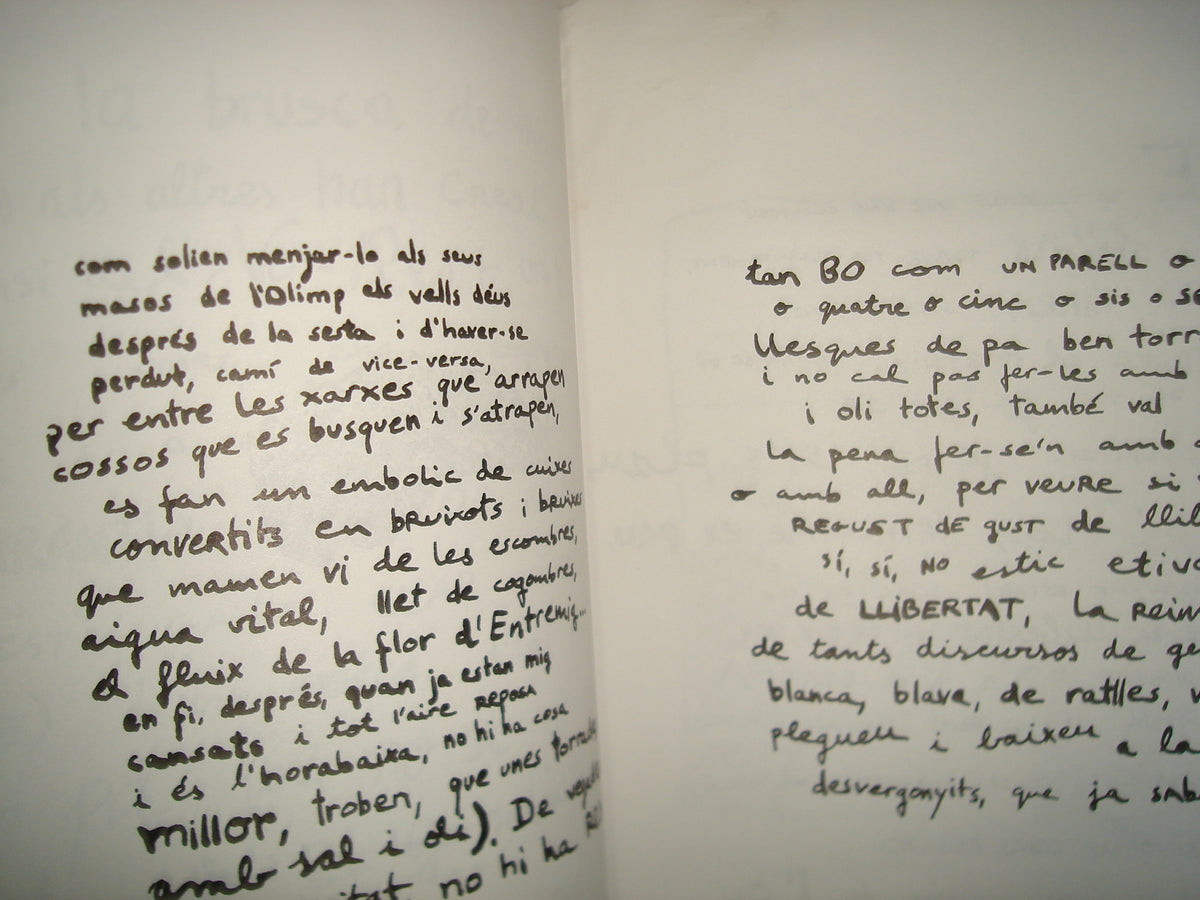 com solien menjar-lo als seus
masos de l'Olimp els vells déus
després de la sesta i d'haver-se
perdut, camí de vice-versa,
per entre les xarxes que arrapen
cossos que es busquen i s'atrapen,
es fan un embolic de cuixes
convertits en bruixots i bruixes
que mamen vi de les escombres,
aigua vital, llet de cogombres,
el fluix de la flor d'Entremig...
en fi, després, quan ja estan mig
cansats i tot l'aire REPOSA
i és l'horabaixa, no hi ha cosa
millor, troben, que unes
amb sal i oli). De
no hi ha
tan BO com UN PARELL o
o quatre o cinc o sis o
llesques de pa ben
i no cal pas fer-les amb
i oli totes, també val
la pena fer-se'n amb
o amb all, per VEURE si
REGUST DE GUST de
sí, sí, NO estic
de LLIBERTAT, la
de tants discursos de
blanca, blava, de ratlles,
plegueu i baixeu a la
desvergonyits, que ja